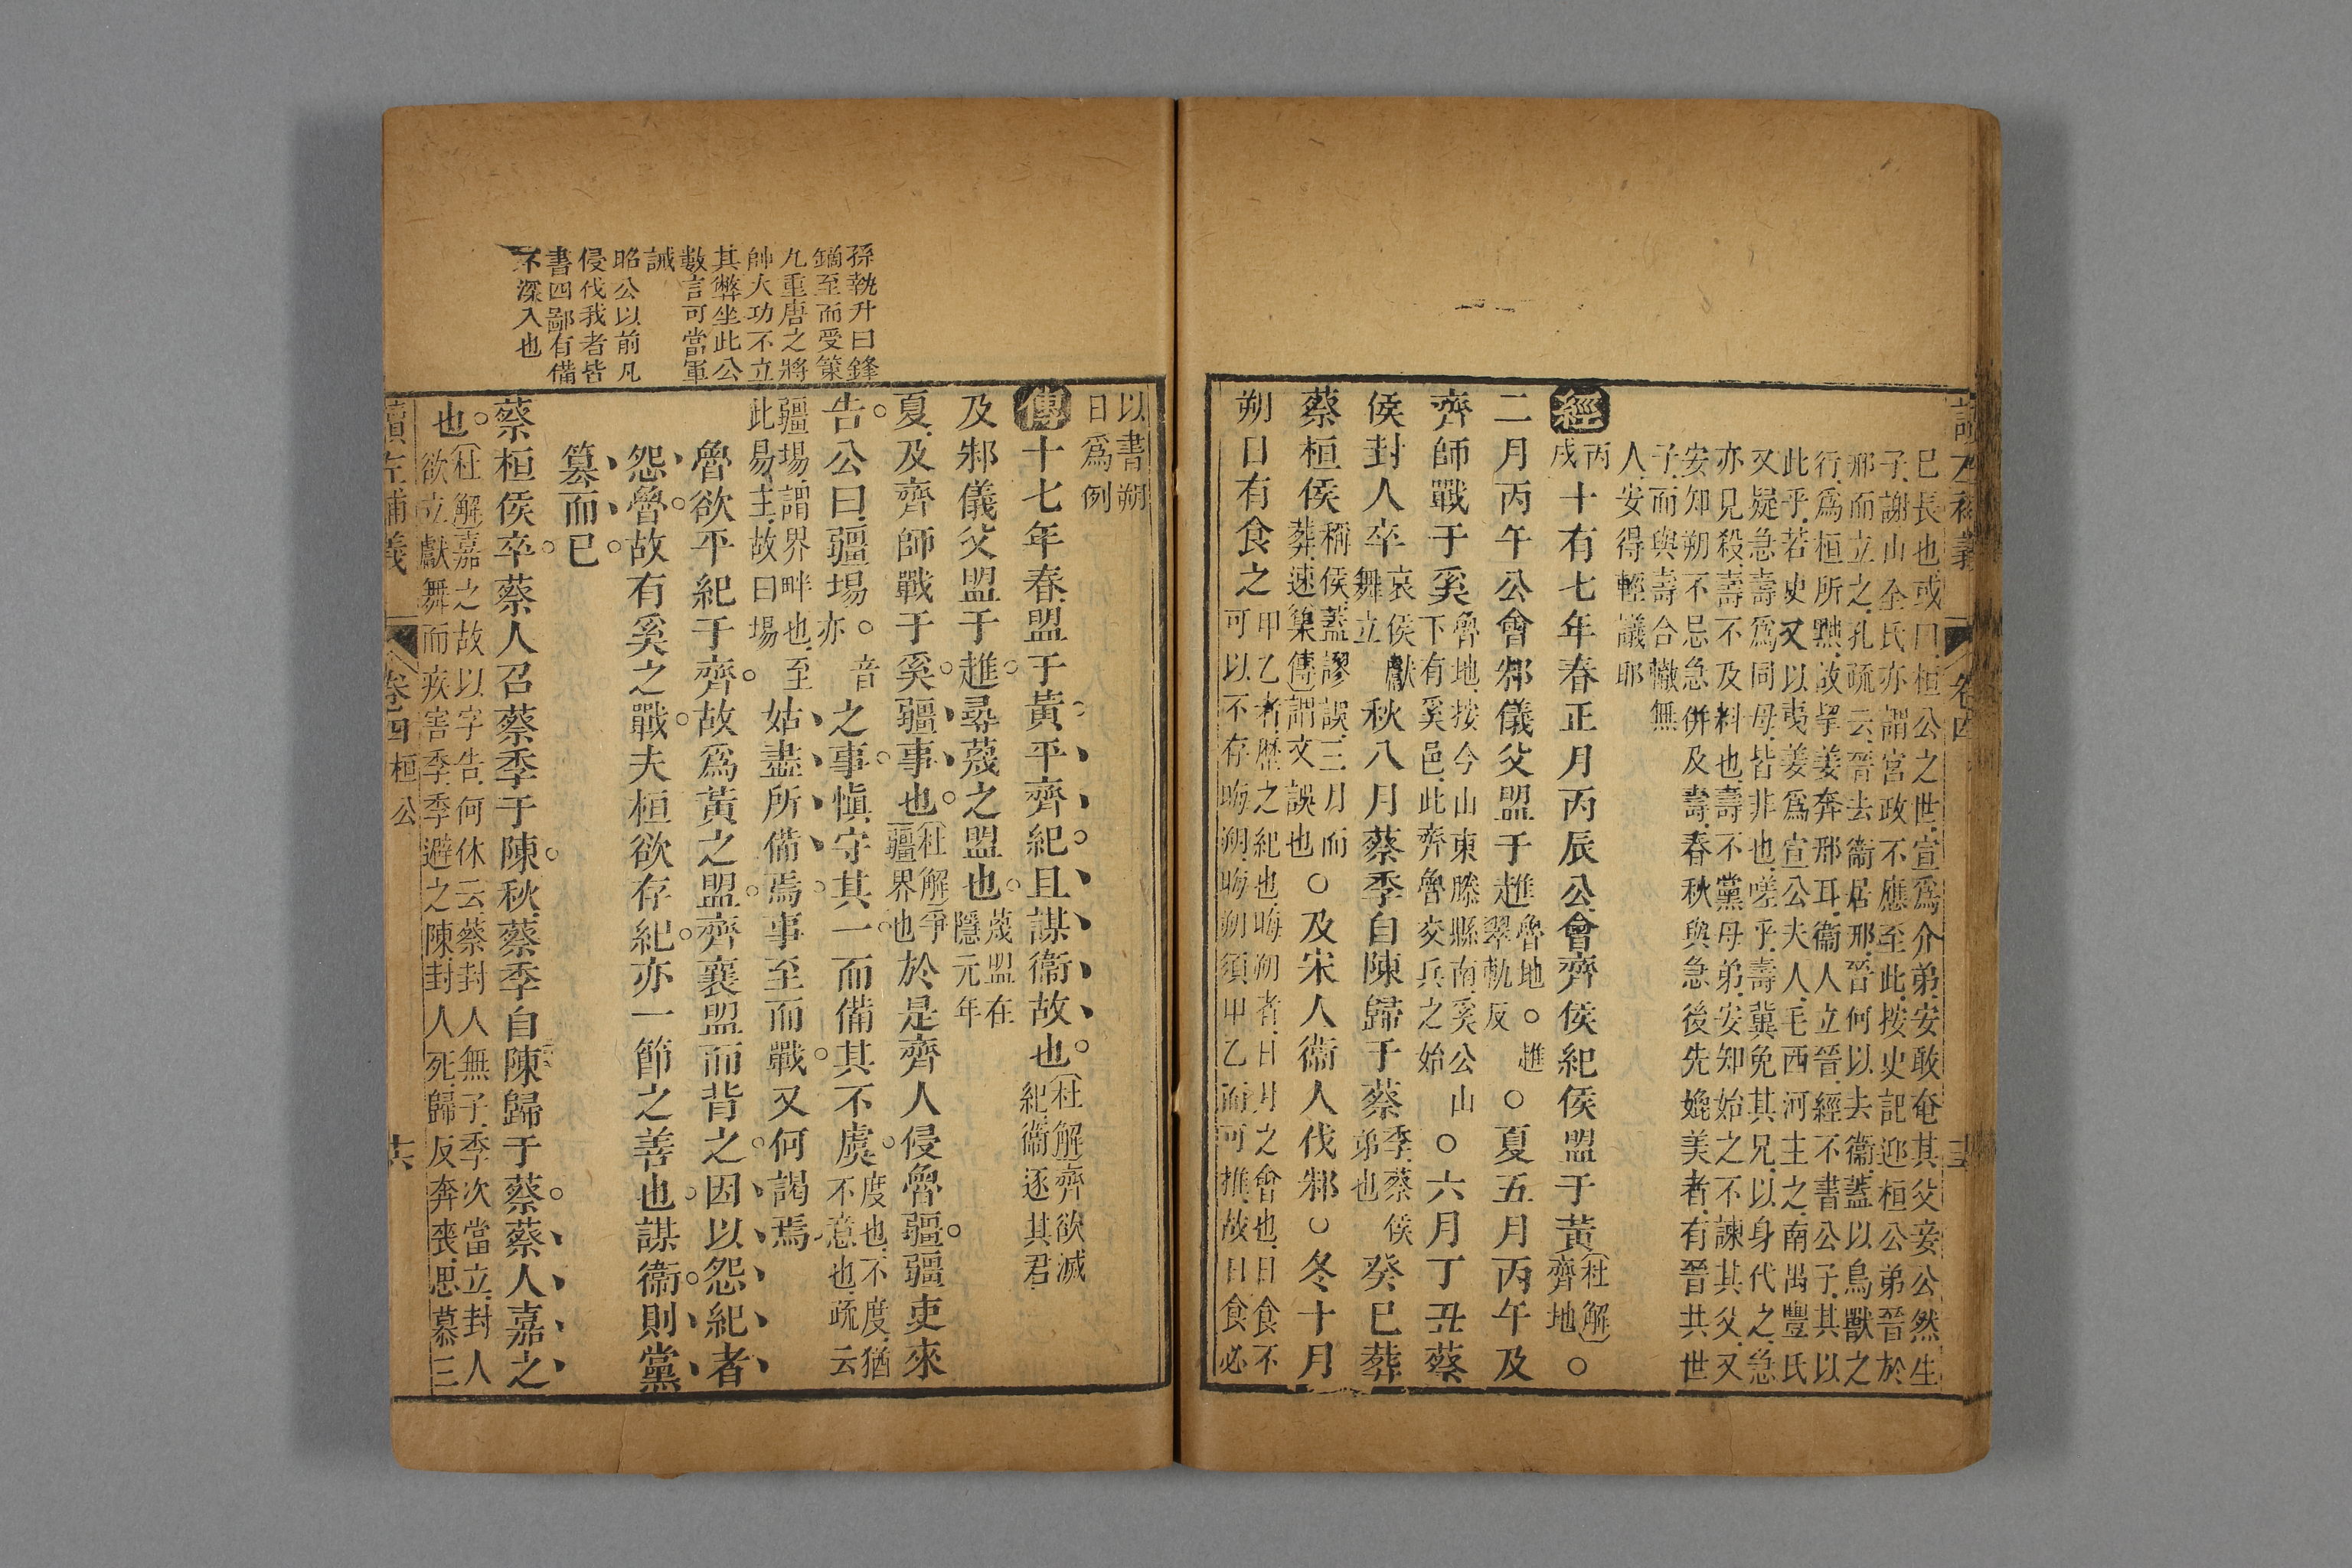 讀左補義
卷四
巳長也或曰桓公之世宣爲介弟安敢奄其父妾公然生
子謝山全氏亦謂宮政不應至此按史記迎桓公弟晉於
邢而立之孔疏云晉去衞居邢晉何以去衞蓋以鳥獸之
行爲桓所㸃故挈姜奔邢耳衞人立晉經不書公子其以
此乎若史又以夷姜爲宣公夫人毛西河主之南禺豐氏
又疑急壽爲同母皆非也嗟乎壽冀免其兄以身代之急
亦見殺壽不及料也壽不黨母弟安知始之不諫其父又
安知朔不忌急併及壽春秋與急後先媲美者有晉共世
子而與壽合轍無
人安得輕議耶
經丙
戌十有七年春正月丙辰公會齊侯紀侯盟于黃杜解
齊地○
二月丙午公會邾儀父盟于趡魯地○趡
翠軌反○夏五月丙午及
齊師戰于奚魯地按今山東滕縣南奚公山
下有奚邑此齊魯交兵之始○六月丁丑蔡
侯封人卒哀侯獻
舞立秋八月蔡季自陳歸于蔡季蔡侯
弟也癸巳葬
蔡桓侯稱侯蓋謬誤三月而
葬速集傳謂文誤也○及宋人衞人伐邾○冬十月
朔日有食之甲乙者歷之紀也晦朔者日月之會也日食不
可以不存晦朔晦朔須甲乙而可推故日食必
以書朔
日爲例
傳十七年春盟于黃平齊紀且謀衞故也杜解齊欲滅
紀衞逐其君
及邾儀父盟于趡尋蔑之盟也蔑盟在
隱元年
夏及齊師戰于奚疆事也杜解爭
疆界也於是齊人侵魯疆疆吏來
告公曰疆埸○音
亦之事愼守其一而備其不虞度也不度猶
不意也疏云
疆埸謂界畔也至
此易主故曰埸姑盡所備焉事至而戰又何謁焉
魯欲平紀于齊故爲黃之盟齊襄盟而背之因以怨紀者
怨魯故有奚之戰夫桓欲存紀亦一節之善也謀衞則黨
簒而已
蔡桓侯卒蔡人召蔡季于陳秋蔡季自陳歸于蔡蔡人嘉之
也杜解嘉之故以字告何休云蔡封人無子季次當立封人
欲立獻舞而疾害季季避之陳封人死歸反奔喪思慕三
讀左補義
卷四桓公
十六
孫執升曰鋒
鏑至而受策
九重唐之將
帥大功不立
其弊坐此公
數言可當軍
誡
昭公以前凡
侵伐我者皆
書四鄙有備
不深入也